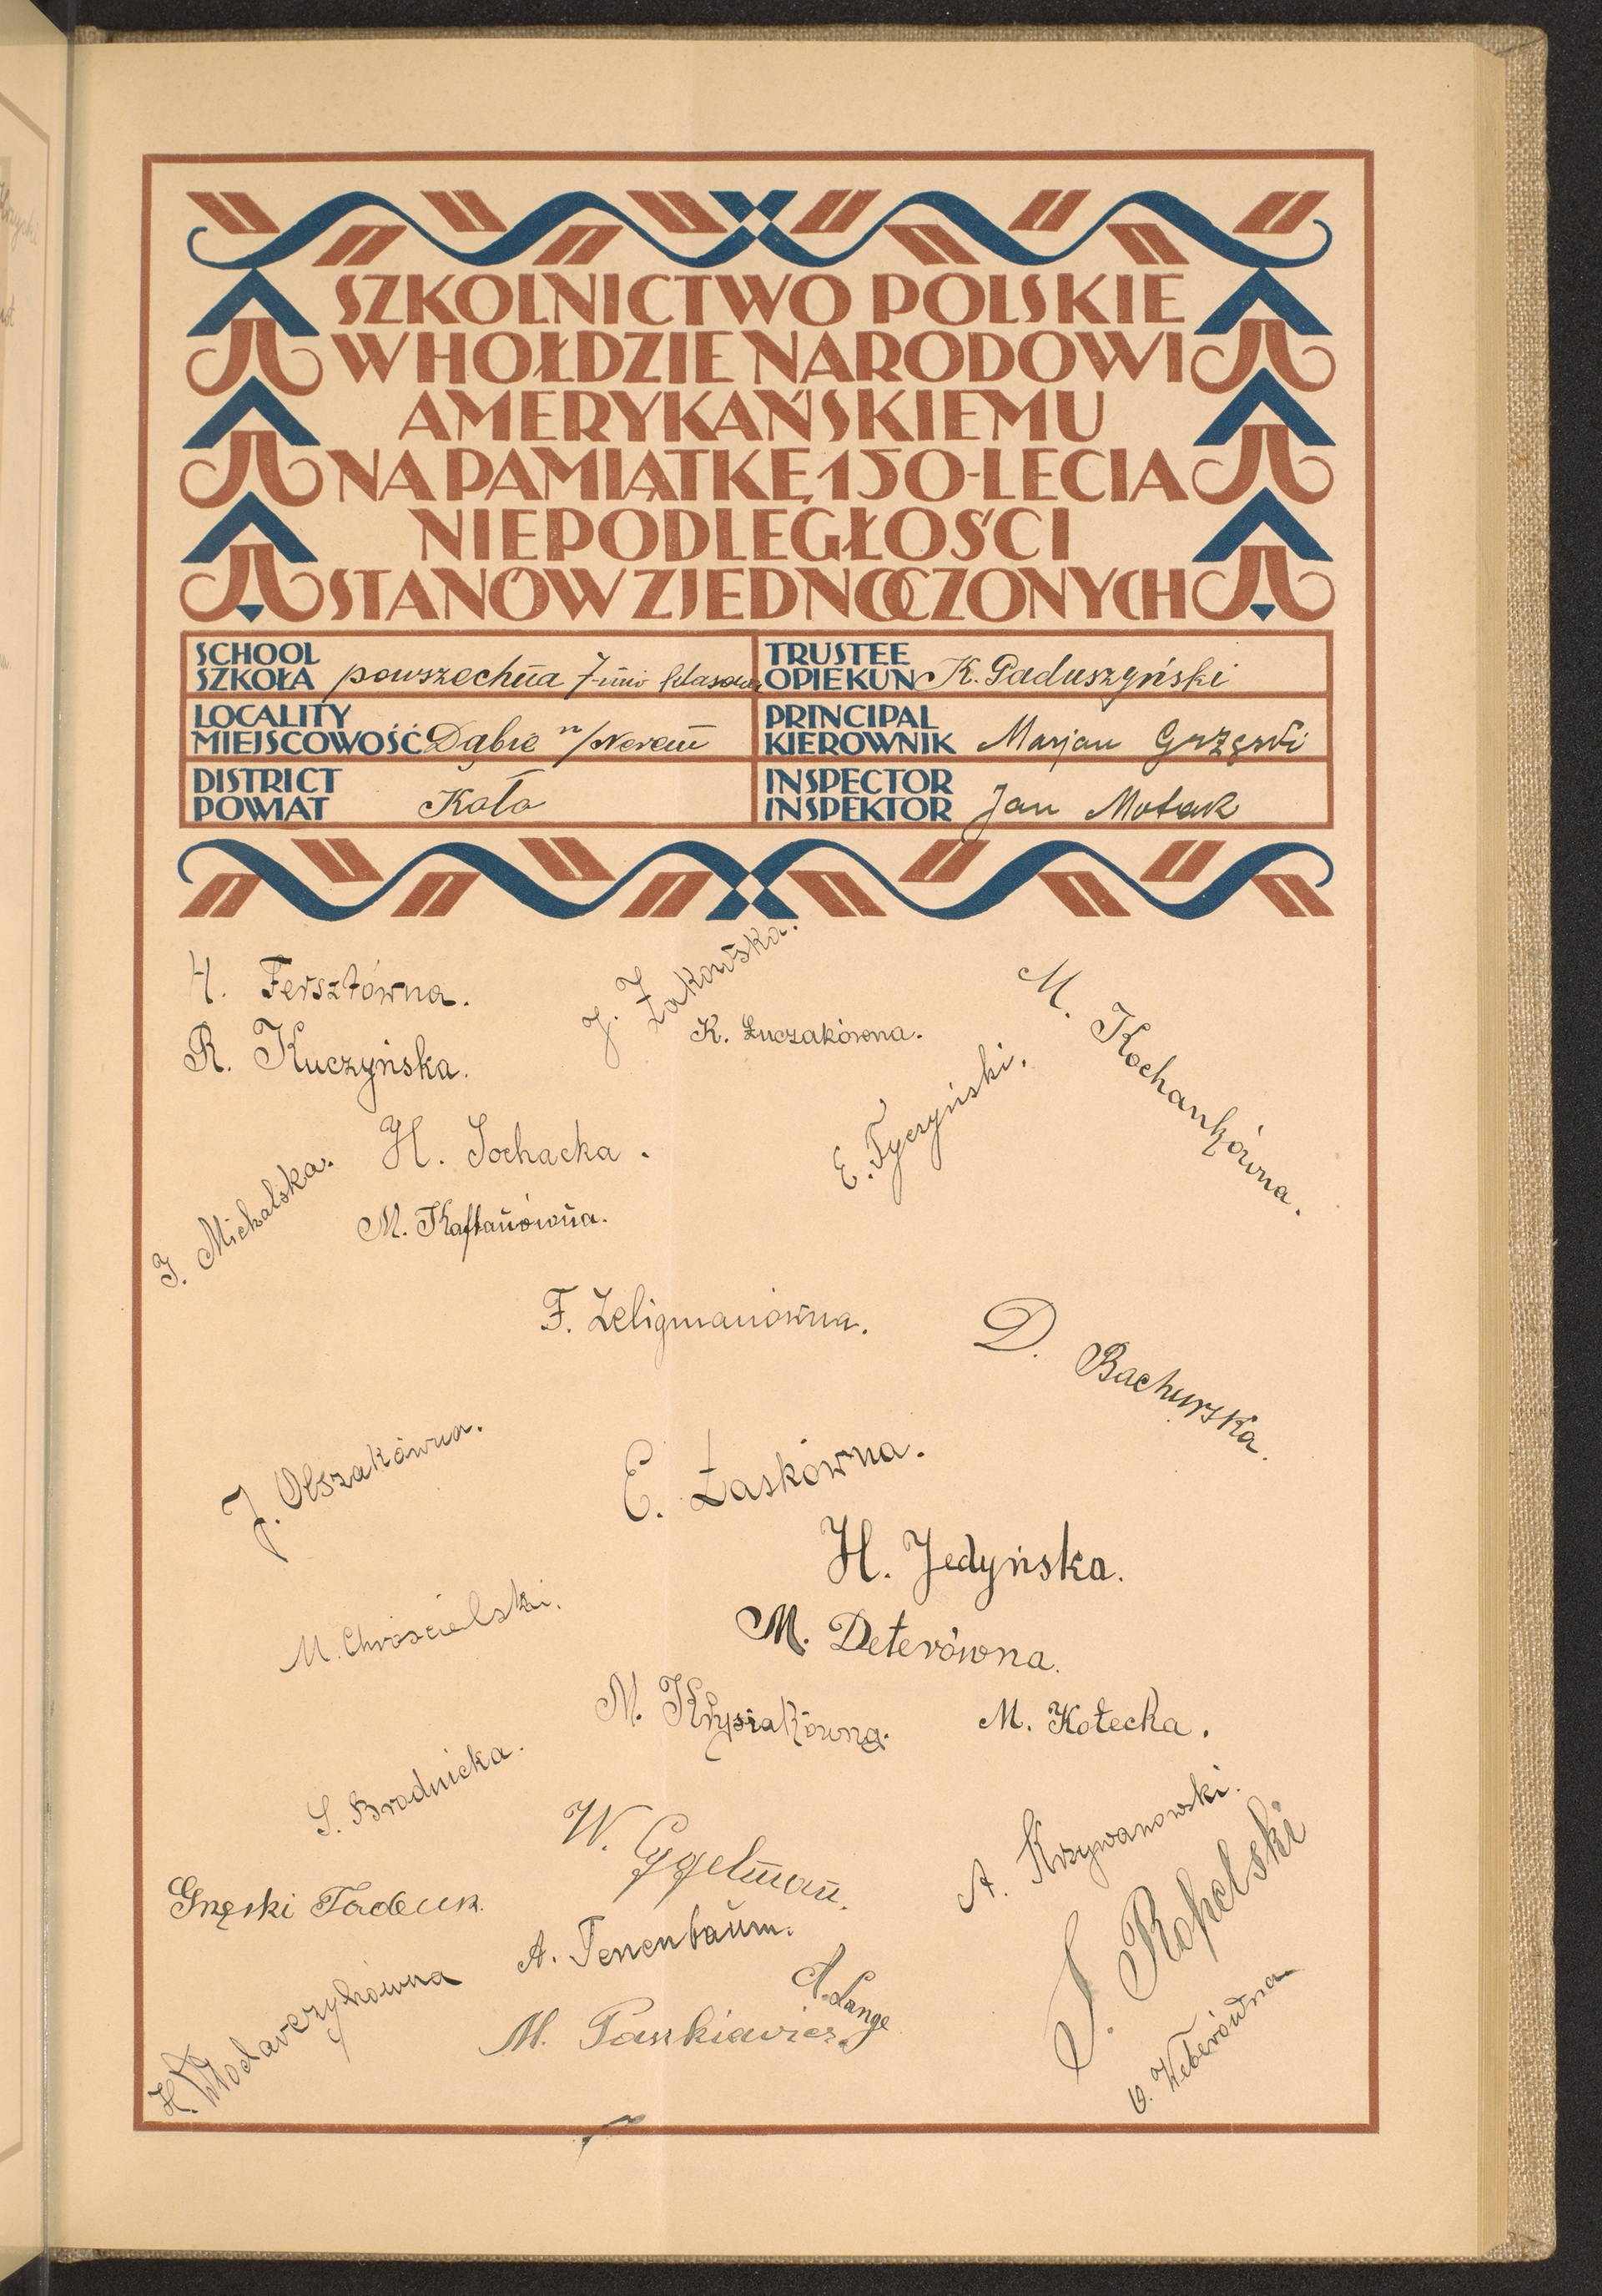 SZKOLNICTWO POLSKIE
W HOŁDZIE NARODOWI
AMERYKAŃSKIEMU
NA PAMIĄTKĘ 150-LECIA
NIEPODLEGŁOŚCI
STANÓW ZJEDNOCZONYCH
SCHOOL
SZKOŁA powszechna 7-mio klasowa
TRUSTEE
OPIEKUN K. Paduszyński
LOCALITY
MIEJSCOWOŚĆ Dąbie n/Nerem
PRINCIPAL
KIEROWNIK Marjan Grzęski
DISTRICT
POWIAT Koło
INSPECTOR
INSPEKTOR Jan Motak
H. Fersztówna.
J. Żakowska.
M. Kochankówna.
R. Kuczyńska.
K. Łuczakówna.
E. Tyczyński.
H. Sochacka.
J. Michalska.
M. Kaftanówna.
F. Zeligmanówna.
D. Bachurska.
J. Olszakówna.
E. Łaskówna.
H. Jedyńska.
M. Chróścielski.
M. Deterówna.
M. Krysiakówna.
M. Kotecka.
S. Brodnicka.
W. Cygelman.
A. Krzywanowski.
Tadeusz
A. Tenenbaum.
S. Kopelski
A. Lange
H. Włodarczykówna
M. Paszkiewicz.
Weberówna